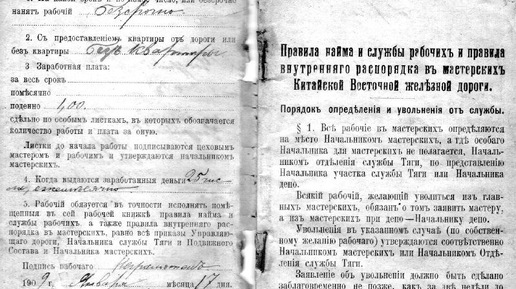 нанятъ рабочій бездорочно
2. Съ предоставленіемъ квартиры отъ дороги или
безъ квартиры безъ квартиры
3. Заработная плата:
за весь срокъ
помѣсячно
поденно 1,00.
сдѣльно по особымъ листкамъ, въ которыхъ обозначается
количество работы и плата за оную.
Листки до начала работы подписываются цеховымъ
мастеромъ и рабочимъ и утверждаются начальникомъ
мастерскихъ.
4. Когда выдаются заработанныя деньги 25 чис
ла ежемѣсячно
5. Рабочій обязуется въ точности исполнять помѣ-
щенныя въ сей рабочей книжкѣ правила найма и
службы рабочихъ, а также правила внутренняго распо-
рядка въ мастерскихъ, равно всѣ приказы Управляю-
щаго дороги, Начальника службы Тяги и Подвижного
Состава и Начальника мастерскихъ.
Подпись рабочаго
190 г. Января мѣсяца 17 дня.
Правила найма и службы рабочихъ и правила
внутренняго распорядка въ мастерскихъ
Китайской Восточной желѣзной дороги.
Порядокъ опредѣленія и увольненія отъ службы.
§ 1. Всѣ рабочіе въ мастерскихъ опредѣляются
на мѣсто Начальникомъ мастерскихъ, а гдѣ особаго
Начальника для мастерскихъ не полагается, Началь-
никомъ отдѣленія службы Тяги, по представленію
Начальника участка службы Тяги или Начальника
депо.
Всякій рабочій, желающій уволиться изъ глав-
ныхъ мастерскихъ, обязанъ о томъ заявить мастеру,
а изъ мастерскихъ при депо—Начальнику депо.
Увольненія въ указанномъ случаѣ (по собствен-
ному желанію рабочаго) утверждаются соотвѣтственно
Начальникомъ мастерскихъ или Начальникомъ Отдѣ-
ленія службы Тяги.
Заявленіе объ увольненіи должно быть сдѣлано
заблаговременно не позже, какъ за двѣ недѣли до